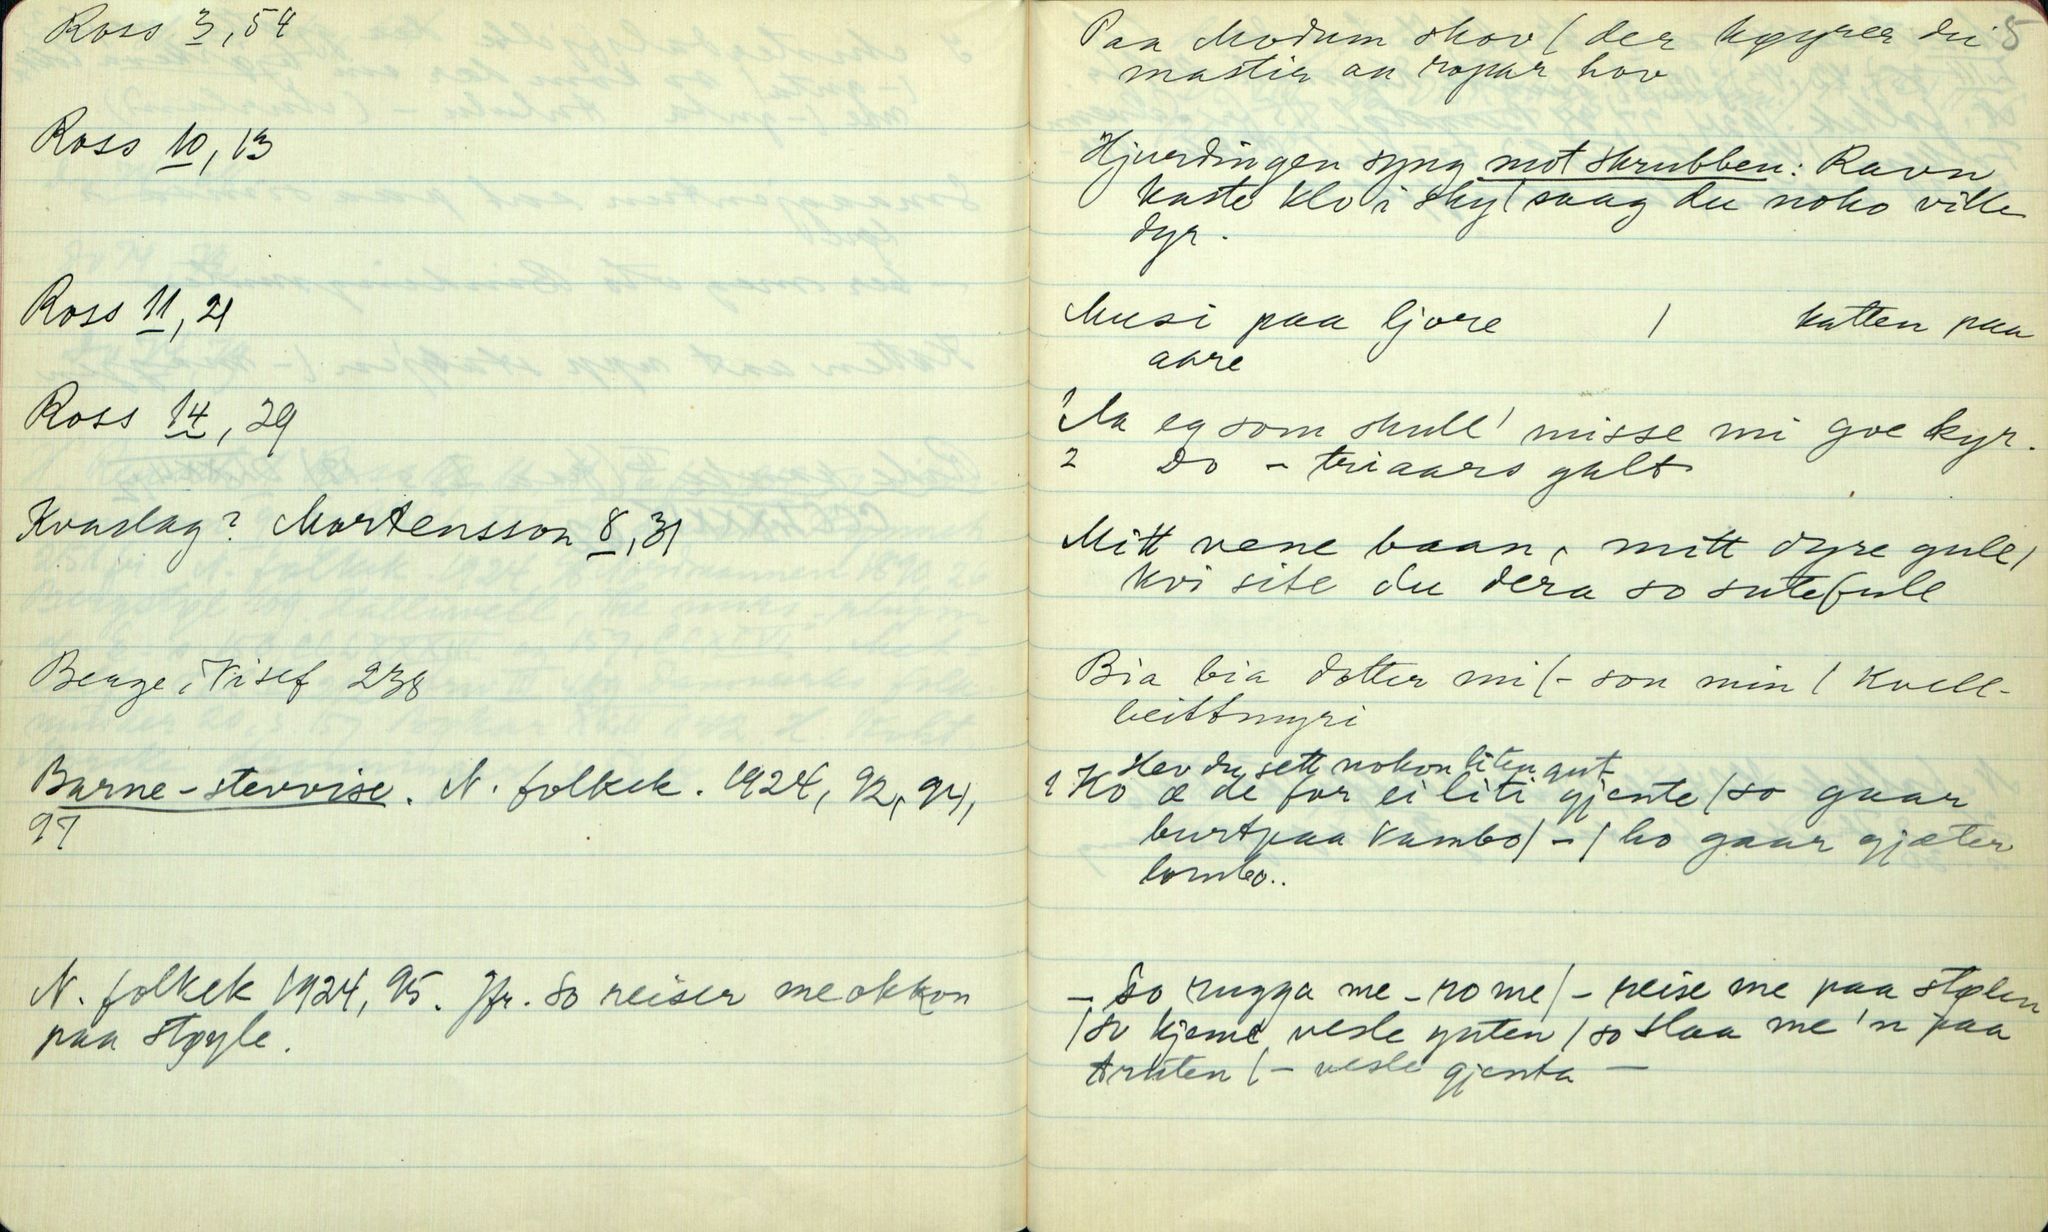 Ross 3, 54
Ross 10, 13
Ross 11, 21
Ross 14, 29
Kvaslag? Mortensson 8, 31
Berge, Visef 238
Barne-stevvise. N. folkek. 1924, 92, 94,
97
N. folkek 1924, 95. Jfr. So reiser me okkon
paa støyle.
5
Paa Modum skov / der køyrer dei
master an ropar hov
Hjurdingen syng mot skrubben: Ravn
kaste klo i sky / saag du noko ville
dyr.
Musi paa ljore / katten paa
aare
1 Aa eg som skull' misse mi goe kyr.
2 Do - triaars galt
Mitt vene baan, mitt dyre gull /
kvi site du dera so sutefull
Bia bia dotter mi / - son min / Kvell-
beittmyri
Hev du sett nokon liten gut
1 Ko æ de for ei liti gjente / so gaar
burtpaa vambo / - / ho gaar gjæter
lombo..
- So rugga me - ro me / - reise me paa stølen
/ so kjeme vesle guten / so slaa me 'n paa
truten / - vesle gjenta -